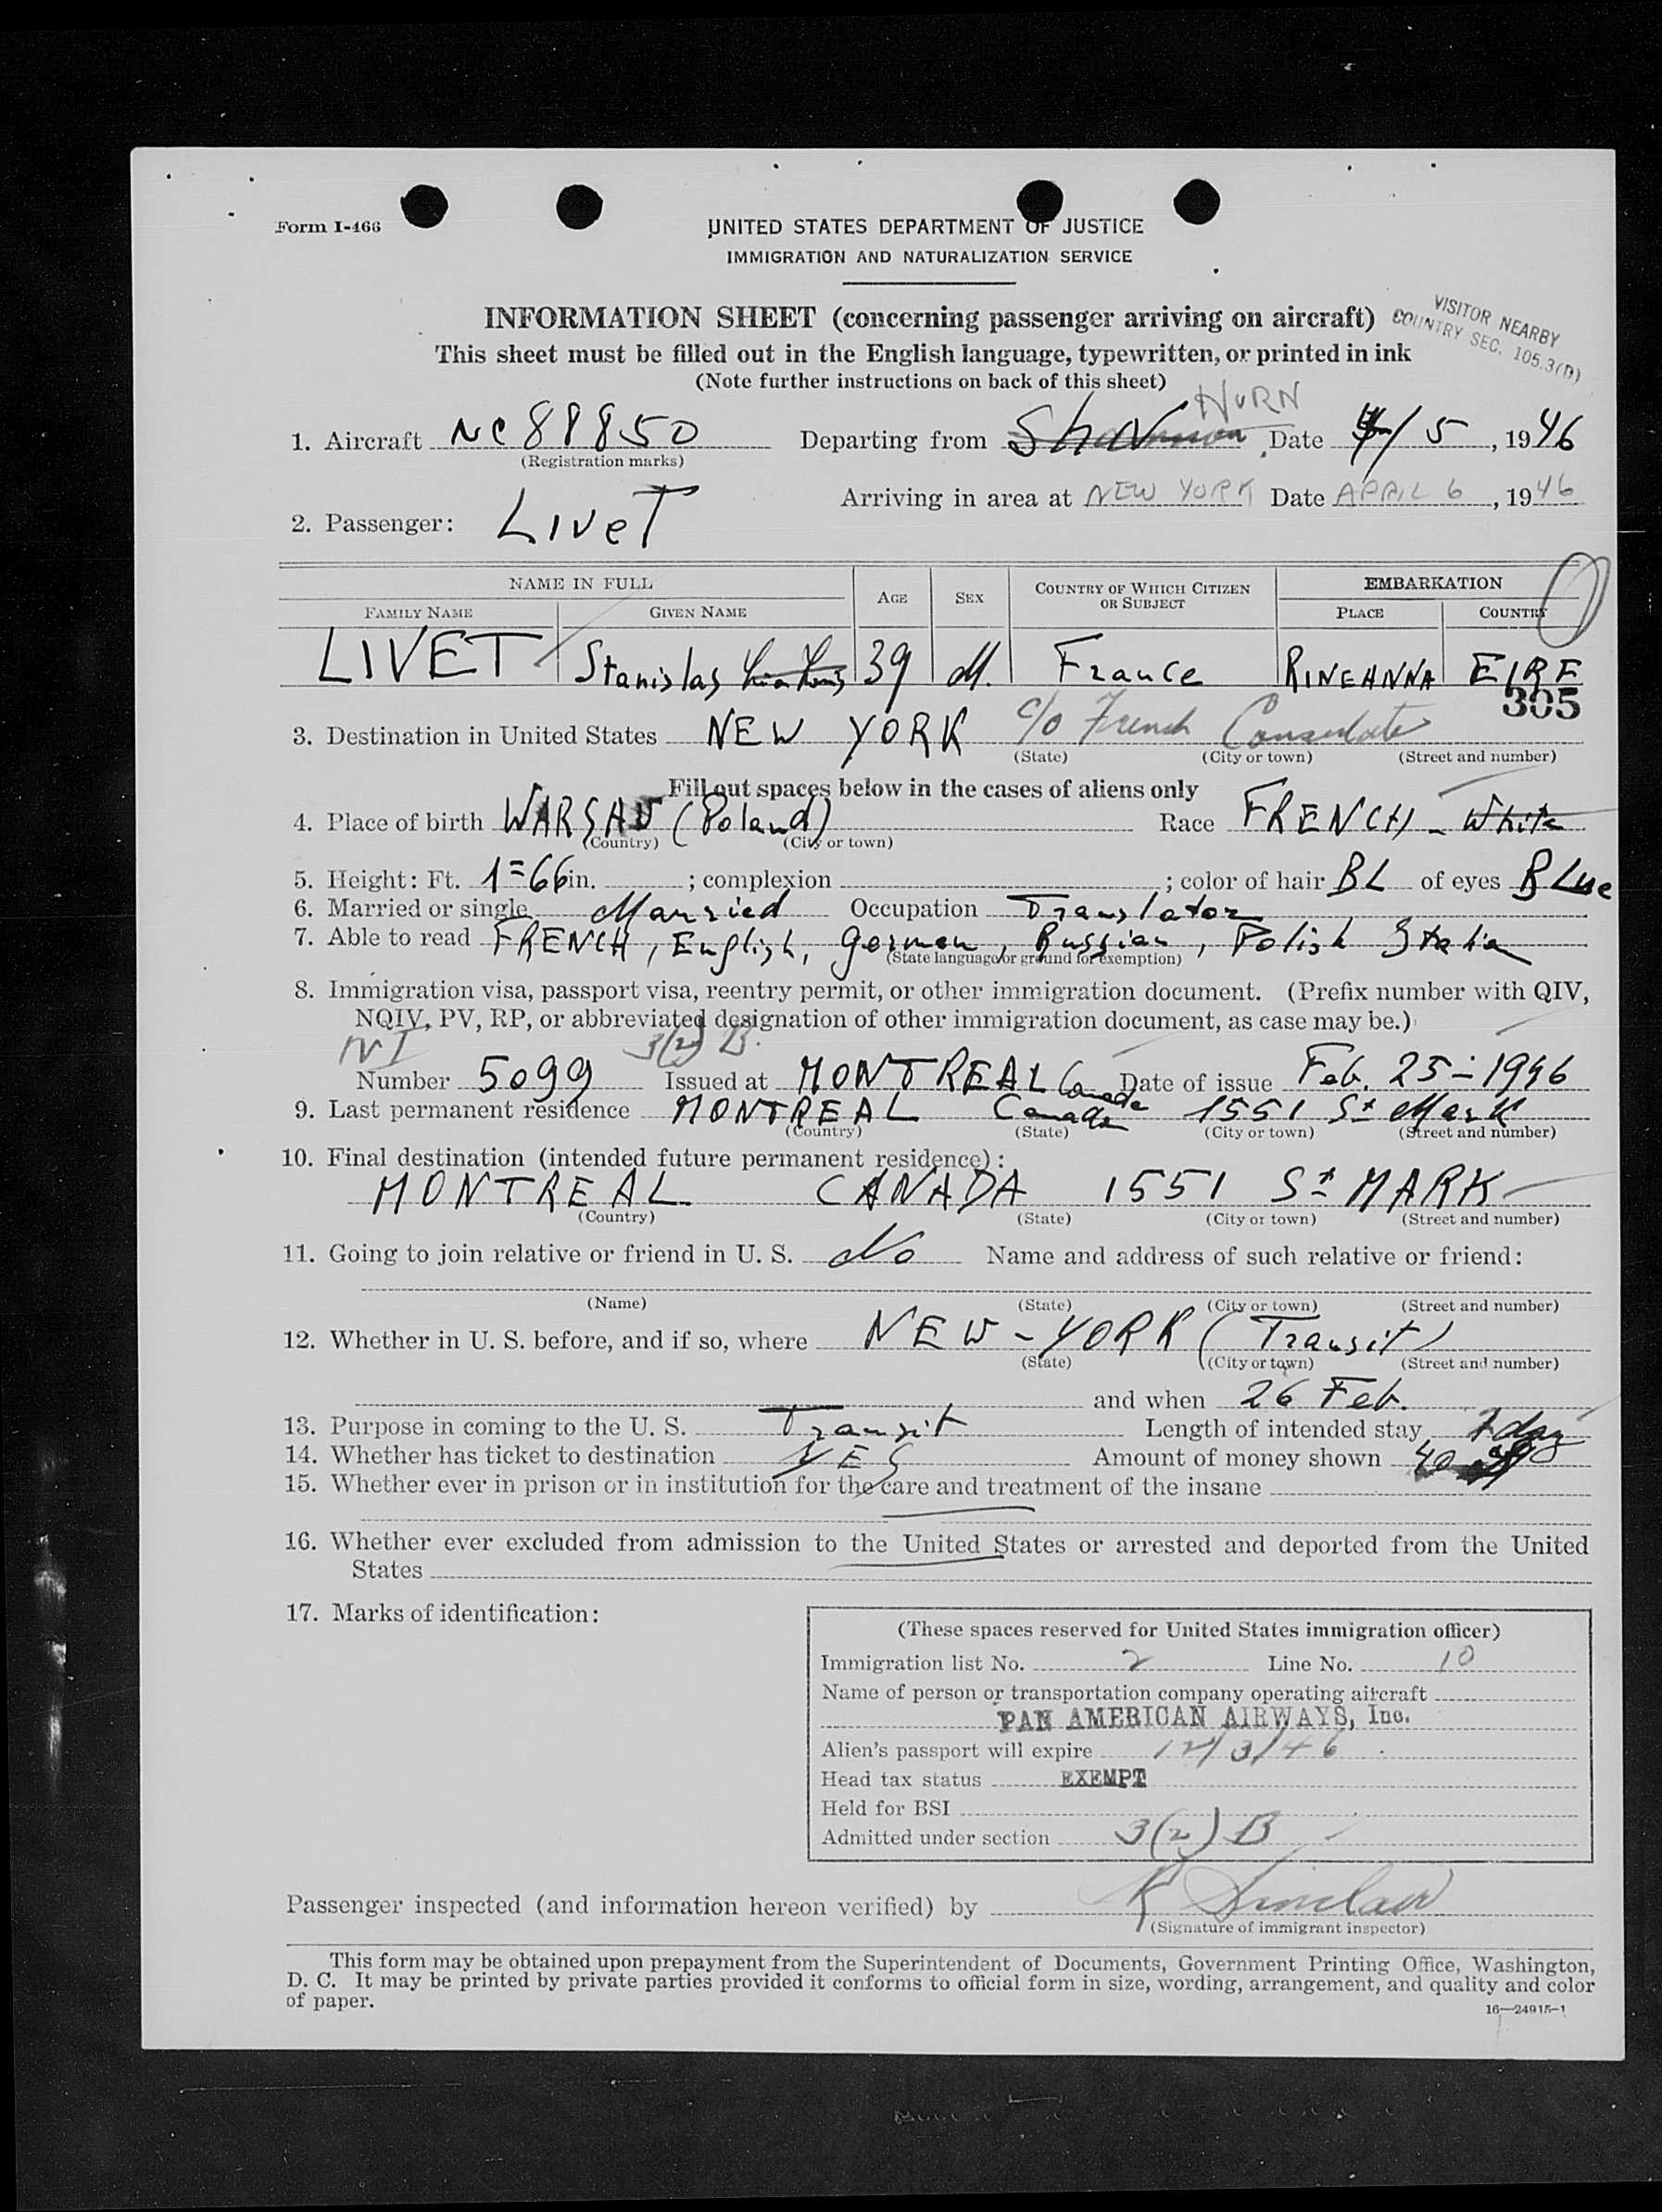 Form I-466
UNITED STATES DEPARTMENT OF JUSTICE
IMMIGRATION AND NATURALIZATION SERVICE
INFORMATION SHEET (concerning passenger arriving on aircraft)
VISITOR NEARBY
COUNTRY SEC. 105.3(D)
This sheet must be filled out in the English language, typewritten, or printed in ink
(Note further instructions on back of this sheet)
HURN
1. Aircraft NC 88850 Departing from Shannon Date 4/5, 1946
(Registration marks)
Arriving in area at NEW YORK Date APRIL 6, 1946
2. Passenger: LIVeT
NAME IN FULL AGE SEX COUNTRY OF WHICH CITIZEN OR SUBJECT EMBARKATION
FAMILY NAME GIVEN NAME PLACE COUNTRY
LIVET Stanislas 39 M. France RINEANNA EIRE
305
3. Destination in United States NEW YORK c/o French Consulate
(State) (City or town) (Street and number)
Fill out spaces below in the cases of aliens only
4. Place of birth WARSAW (Poland) Race FRENCH - White
(Country) (City or town)
5. Height: Ft. 1=66 in. ; complexion ; color of hair BL of eyes BLue
6. Married or single Married Occupation Translator
7. Able to read FRENCH, English, German, Russian, Polish Italia
(State language or ground for exemption)
8. Immigration visa, passport visa, reentry permit, or other immigration document. (Prefix number with QIV,
NQIV, PV, RP, or abbreviated designation of other immigration document, as case may be.)
NI 3(2) B.
Number 5099 Issued at MONTREAL Canada Date of issue Feb. 25-1946
9. Last permanent residence MONTREAL Canada 1551 St Mark
(Country) (State) (City or town) (Street and number)
10. Final destination (intended future permanent residence):
MONTREAL CANADA 1551 St MARK
(Country) (State) (City or town) (Street and number)
11. Going to join relative or friend in U. S. No Name and address of such relative or friend:
(Name) (State) (City or town) (Street and number)
12. Whether in U. S. before, and if so, where NEW-YORK (Transit)
(State) (City or town) (Street and number)
and when 26 Feb.
13. Purpose in coming to the U. S. Transit Length of intended stay 1 day
14. Whether has ticket to destination YES Amount of money shown 40
15. Whether ever in prison or in institution for the care and treatment of the insane
16. Whether ever excluded from admission to the United States or arrested and deported from the United
States
17. Marks of identification:
(These spaces reserved for United States immigration officer)
Immigration list No. 2 Line No. 10
Name of person or transportation company operating aircraft
PAN AMERICAN AIRWAYS, Inc.
Alien's passport will expire 12/3/46
Head tax status EXEMPT
Held for BSI
Admitted under section 3(2) B
Passenger inspected (and information hereon verified) by R Sinclair
(Signature of immigrant inspector)
This form may be obtained upon prepayment from the Superintendent of Documents, Government Printing Office, Washington,
D. C. It may be printed by private parties provided it conforms to official form in size, wording, arrangement, and quality and color
of paper.
16—24915-1